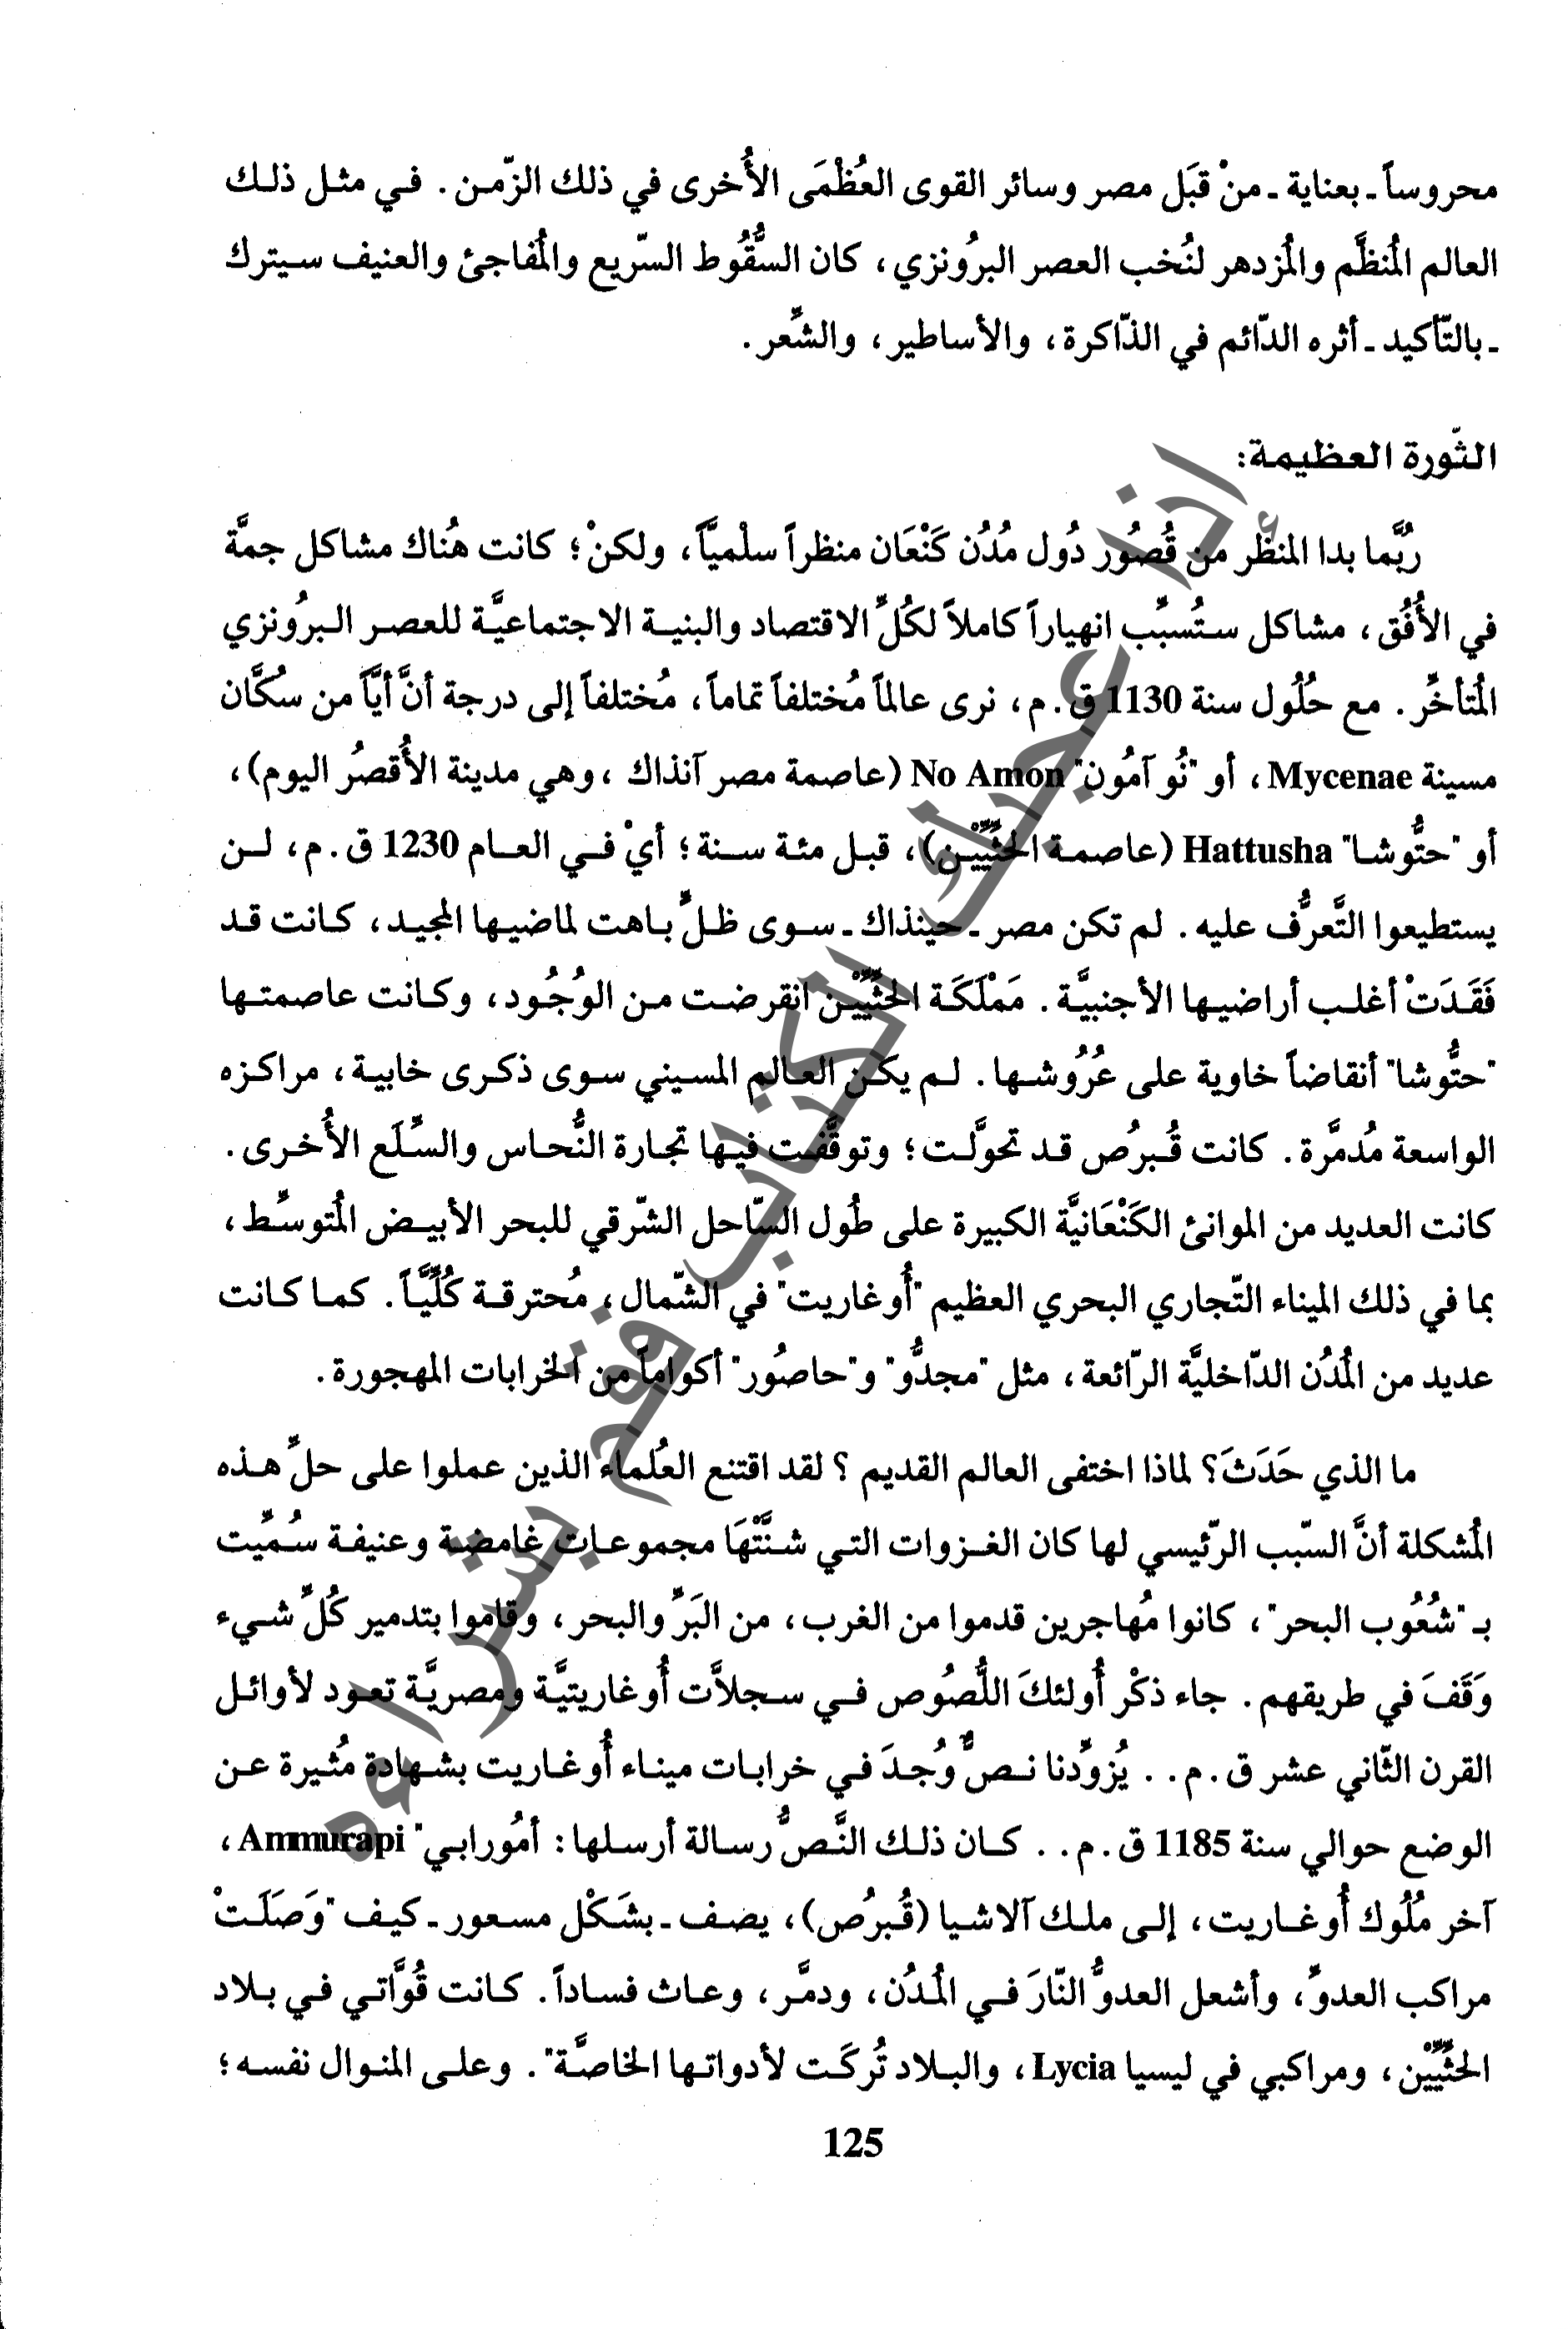 محروساً ـ بعناية ـ منْ قبَل مصر وسائر القوى العُظْمَى الأُخرى في ذلك الزّمن . في مثل ذلك
العالم المُنظَّم والمُزدهر لنُخب العصر البرُونزي ، كان السُّقُوط السّريع والمُفاجئ والعنيف سيترك
ـ بالتّأكيد ـ أثره الدّائم في الذّاكرة ، والأساطير ، والشِّعر .
الثّورة العظيمة:
رُبَّما بدا المنظر من قُصُور دُول مُدُن كَنْعَان منظراً سلْميَّاً ، ولكنْ ؛ كانت هُناك مشاكل جمَّة
في الأُفُق ، مشاكل ستُسبِّب انهياراً كاملاً لكُلِّ الاقتصاد والبنية الاجتماعيَّة للعصر البرُونزي
المُتأخِّر . مع حُلُول سنة 1130 ق . م ، نرى عالماً مُختلفاً تماماً ، مُختلفاً إلى درجة أنَّ أيَّاً من سُكَّان
مسينة Mycenae ، أو "نُو آمُون" No Amon (عاصمة مصر آنذاك ، وهي مدينة الأُقصُر اليوم) ،
أو "حتُّوشا" Hattusha (عاصمة الحثِّيِّيْن) ، قبل مئة سنة ؛ أيْ في العام 1230 ق . م ، لن
يستطيعوا التَّعرُّف عليه . لم تكن مصر ـ حينذاك ـ سوى ظلٍّ باهت لماضيها المجيد ، كانت قد
فَقَدَتْ أغلب أراضيها الأجنبيَّة . مَمْلَكَة الحثِّيِّيْن انقرضت من الوُجُود ، وكانت عاصمتها
"حتُّوشا" أنقاضاً خاوية على عُرُوشها . لم يكن العالم المسيني سوى ذكرى خابية ، مراكزه
الواسعة مُدمَّرة . كانت قُبرُص قد تحوَّلت ؛ وتوقَّفت فيها تجارة النُّحاس والسِّلَع الأُخرى .
كانت العديد من الموانئ الكَنْعَانيَّة الكبيرة على طُول السّاحل الشّرقي للبحر الأبيض المُتوسِّط ،
بما في ذلك الميناء التّجاري البحري العظيم "أُوغاريت" في الشّمال ، مُحترقة كُلِّيَّاً . كما كانت
عديد من المُدُن الدّاخليَّة الرّائعة ، مثل "مجدُّو" و"حاصُور" أكواماً من الخرابات المهجورة .
ما الذي حَدَثَ؟ لماذا اختفى العالم القديم ؟ لقد اقتنع العُلماء الذين عملوا على حلِّ هذه
المُشكلة أنَّ السّبب الرّئيسي لها كان الغزوات التي شنَّتْهَا مجموعات غامضة وعنيفة سُمِّيت
بـ "شُعُوب البحر" ، كانوا مُهاجرين قدموا من الغرب ، من البَرِّ والبحر ، وقاموا بتدمير كُلِّ شيء
وَقَفَ في طريقهم . جاء ذكْر أُولئكَ اللُّصُوص في سجلاَّت أُوغاريتيَّة ومصريَّة تعود لأوائل
القرن الثّاني عشر ق . م . . يُزوِّدنا نصٌّ وُجدَ في خرابات ميناء أُوغاريت بشهادة مُثيرة عن
الوضع حوالي سنة 1185 ق . م . . كان ذلك النَّصُّ رسالة أرسلها : أمُورابي" Ammurapi ،
آخر مُلُوك أُوغاريت ، إلى ملك آلاشيا (قُبرُص) ، يضف ـ بشَكْل مسعور ـ كيف "وَصَلَتْ
مراكب العدوِّ ، وأشعل العدوُّ النّارَ في المُدُن ، ودمَّر ، وعاث فساداً . كانت قُوَّاتي في بلاد
الحثِّيِّيْن ، ومراكبي في ليسيا Lycia ، والبلاد تُركَت لأدواتها الخاصَّة" . وعلى المنوال نفسه ؛
125
إذا أعجبك الكتاب فقم بشراءه